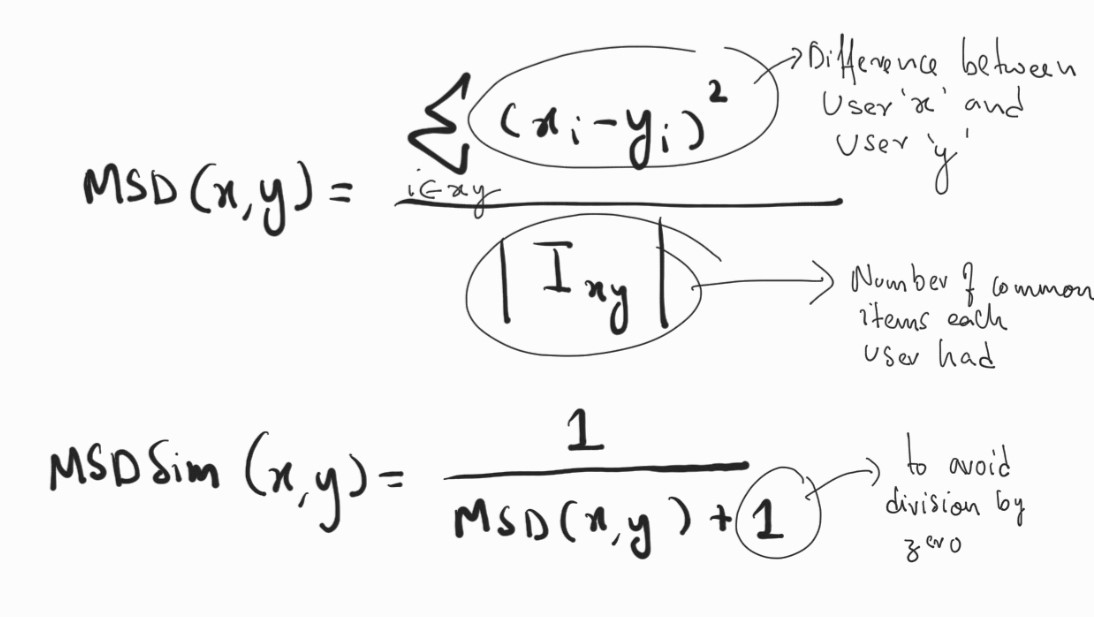 MSD(x,y) = Σ i∈xy (xi-yi)² / |Ixy|
Difference between
User 'x' and
User 'y'
Number of common
items each
user had
MSDSim (x,y) = 1 / MSD(x,y) + 1
to avoid
division by
zero